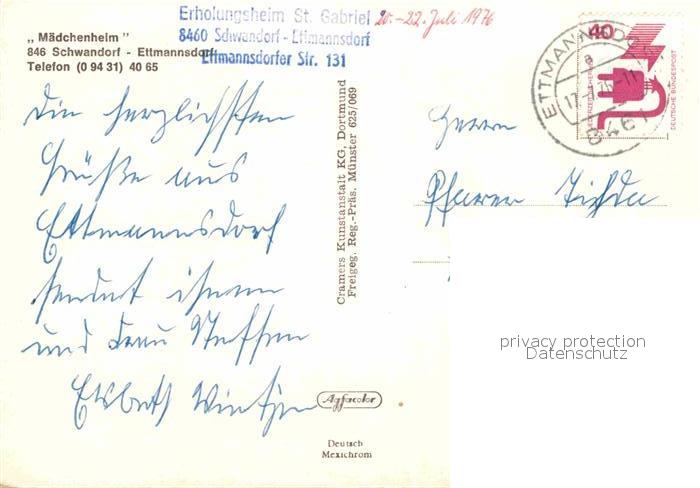 „Mädchenheim"
846 Schwandorf - Ettmannsdorf
Telefon (0 94 31) 40 65
Erholungsheim St. Gabriel
8460 Schwandorf - Ettmannsdorf
Ettmannsdorfer Str. 131
20.-22. Juli 1976
Die herzlichsten
Grüße aus
Ettmannsdorf
sendet ihnen
und Frau Steffen
Elsbeth
Cramers Kunstanstalt KG, Dortmund
Freigeg. Reg.-Präs. Münster 625/069
Agfacolor
Deutsch
Mexichrom
40
DEUTSCHE BUNDESPOST
ETTMANNSDORF
Herrn
Pfarrer
privacy protection
Datenschutz